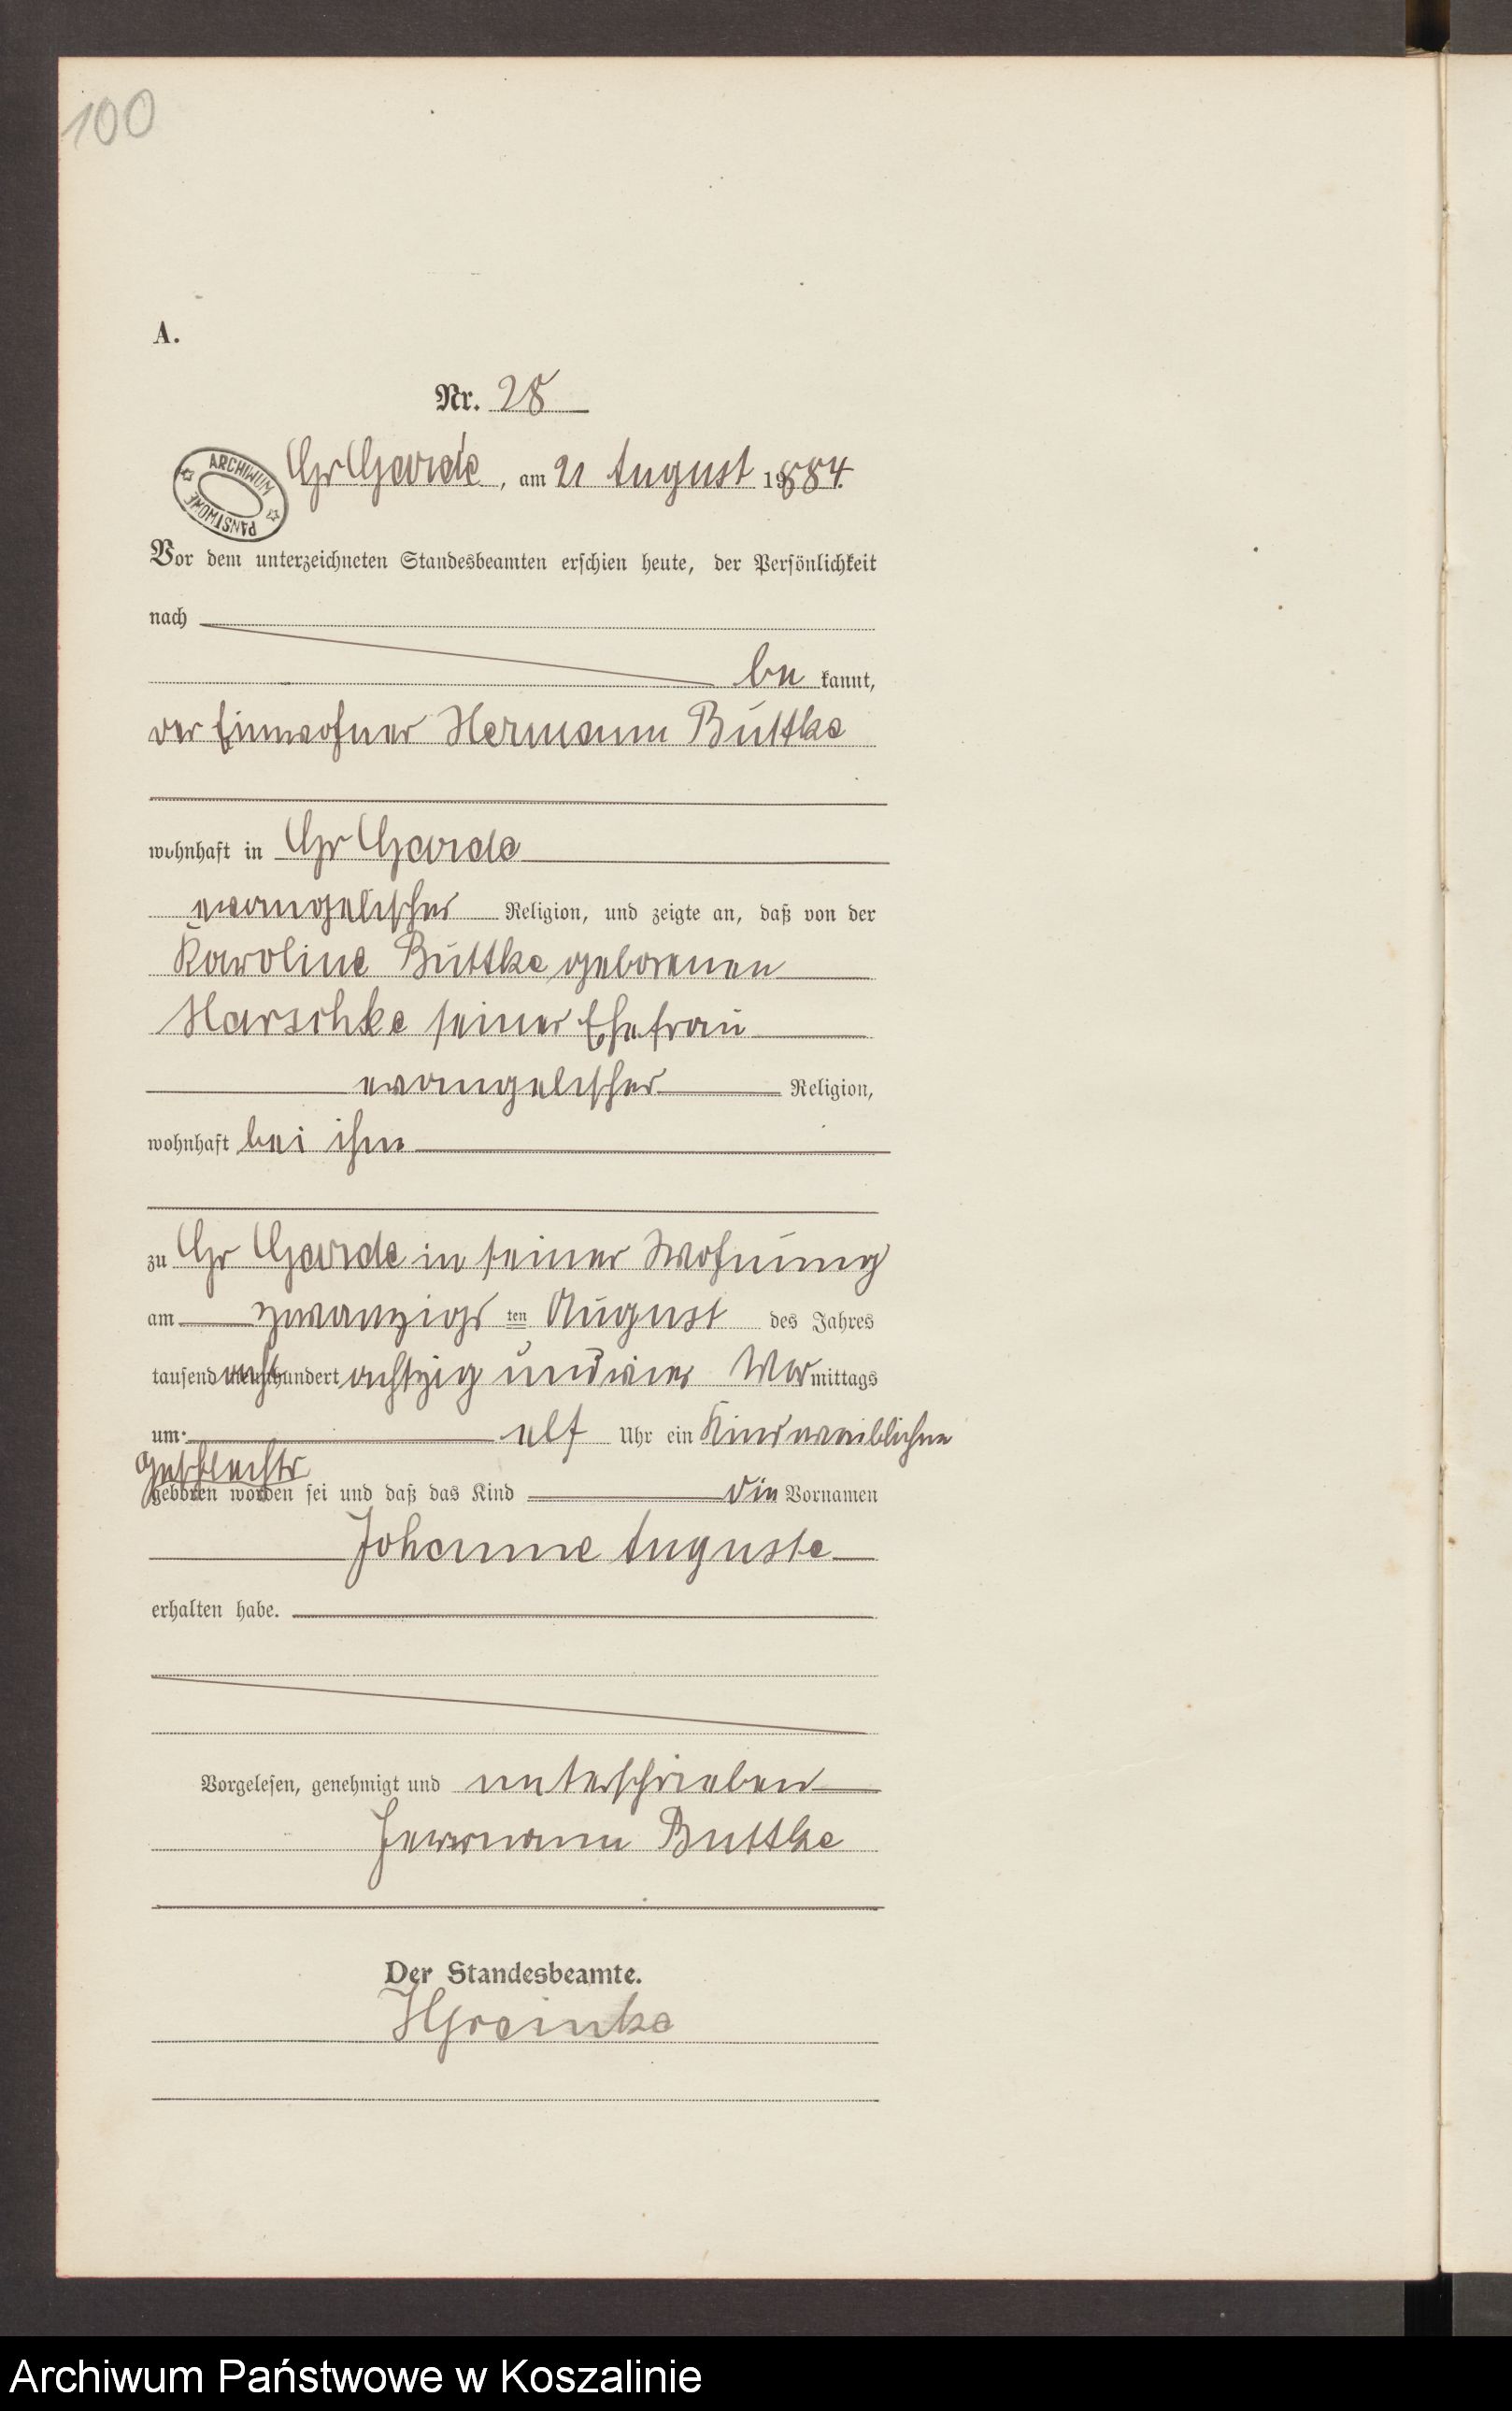 100
A.
Nr. 28
ARCHIWUM PAŃSTWOWE
Gr Garde, am 21 August 1884.
Vor dem unterzeichneten Standesbeamten erschien heute, der Persönlichkeit
nach
be kannt,
der Einwohner Hermann Buttke
wohnhaft in Gr Garde
evangelischer Religion, und zeigte an, daß von der
Karoline Buttke geborenen
Harschke seiner Ehefrau
evangelischer Religion,
wohnhaft bei ihm
zu Gr Garde in seiner Wohnung
am zwanzigs ten August des Jahres
tausend acht hundert achtzig und vier Vor mittags
um elf Uhr ein Kind weiblichen
Geschlechts
geboren worden sei und daß das Kind die Vornamen
Johanne Auguste
erhalten habe.
Vorgelesen, genehmigt und unterschrieben
Herrmann Buttke
Der Standesbeamte.
Archiwum Państwowe w Koszalinie